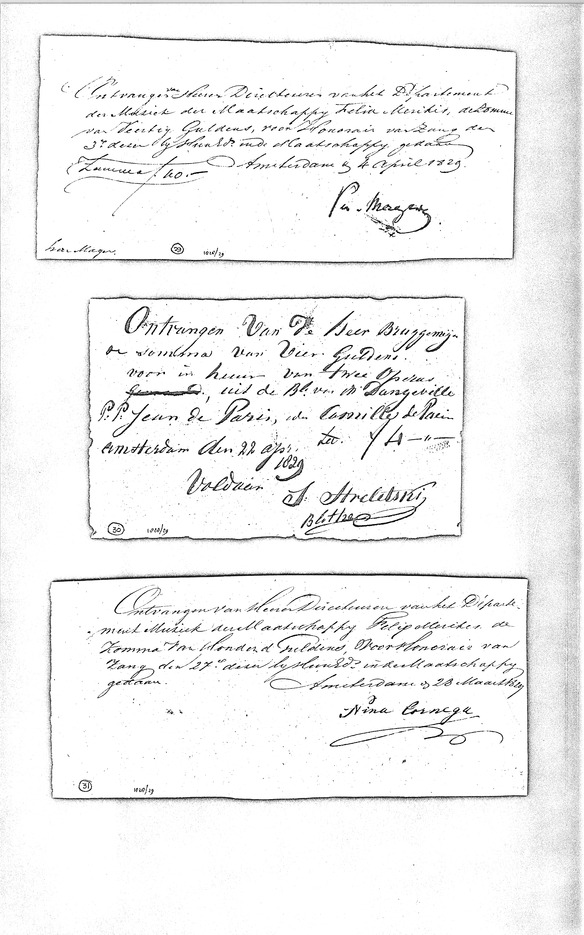 Ontvangen van Heeren Directeuren van het Departement
der Muziek der Maatschappy Felix Meritis, de Somma
van Veertig Guldens, voor Honorair van Zang den
3e dezer by Hun Ed. in de Maatschappy gedaan
Zamma f 40.— Amsterdam 4 April 1829.
29
1828/29
Ontvangen Van De Heer Bruggemeijer
de somma van Vier Guldens.
voor in heuur van twee Operas
, uit de Bl. van Mr Dangeville
Jean de Paris, en Camille de Paer
Zeo. f 4-"-
Amsterdam den 22 apr. 1829
Voldaan S. Streletski
Blothe
30
1828/29
Ontvangen van Heeren Directeuren van het Departe-
ment Muziek der Maatschappy Felix Meritis, de
Zomma Van Honderd Guldens, Voor Honorair van
Zang den 27e dezer by Hun Ed. in de Maatschappy
gedaan. Amsterdam 28 Maart 1829
Nina Cornega
31
1828/29